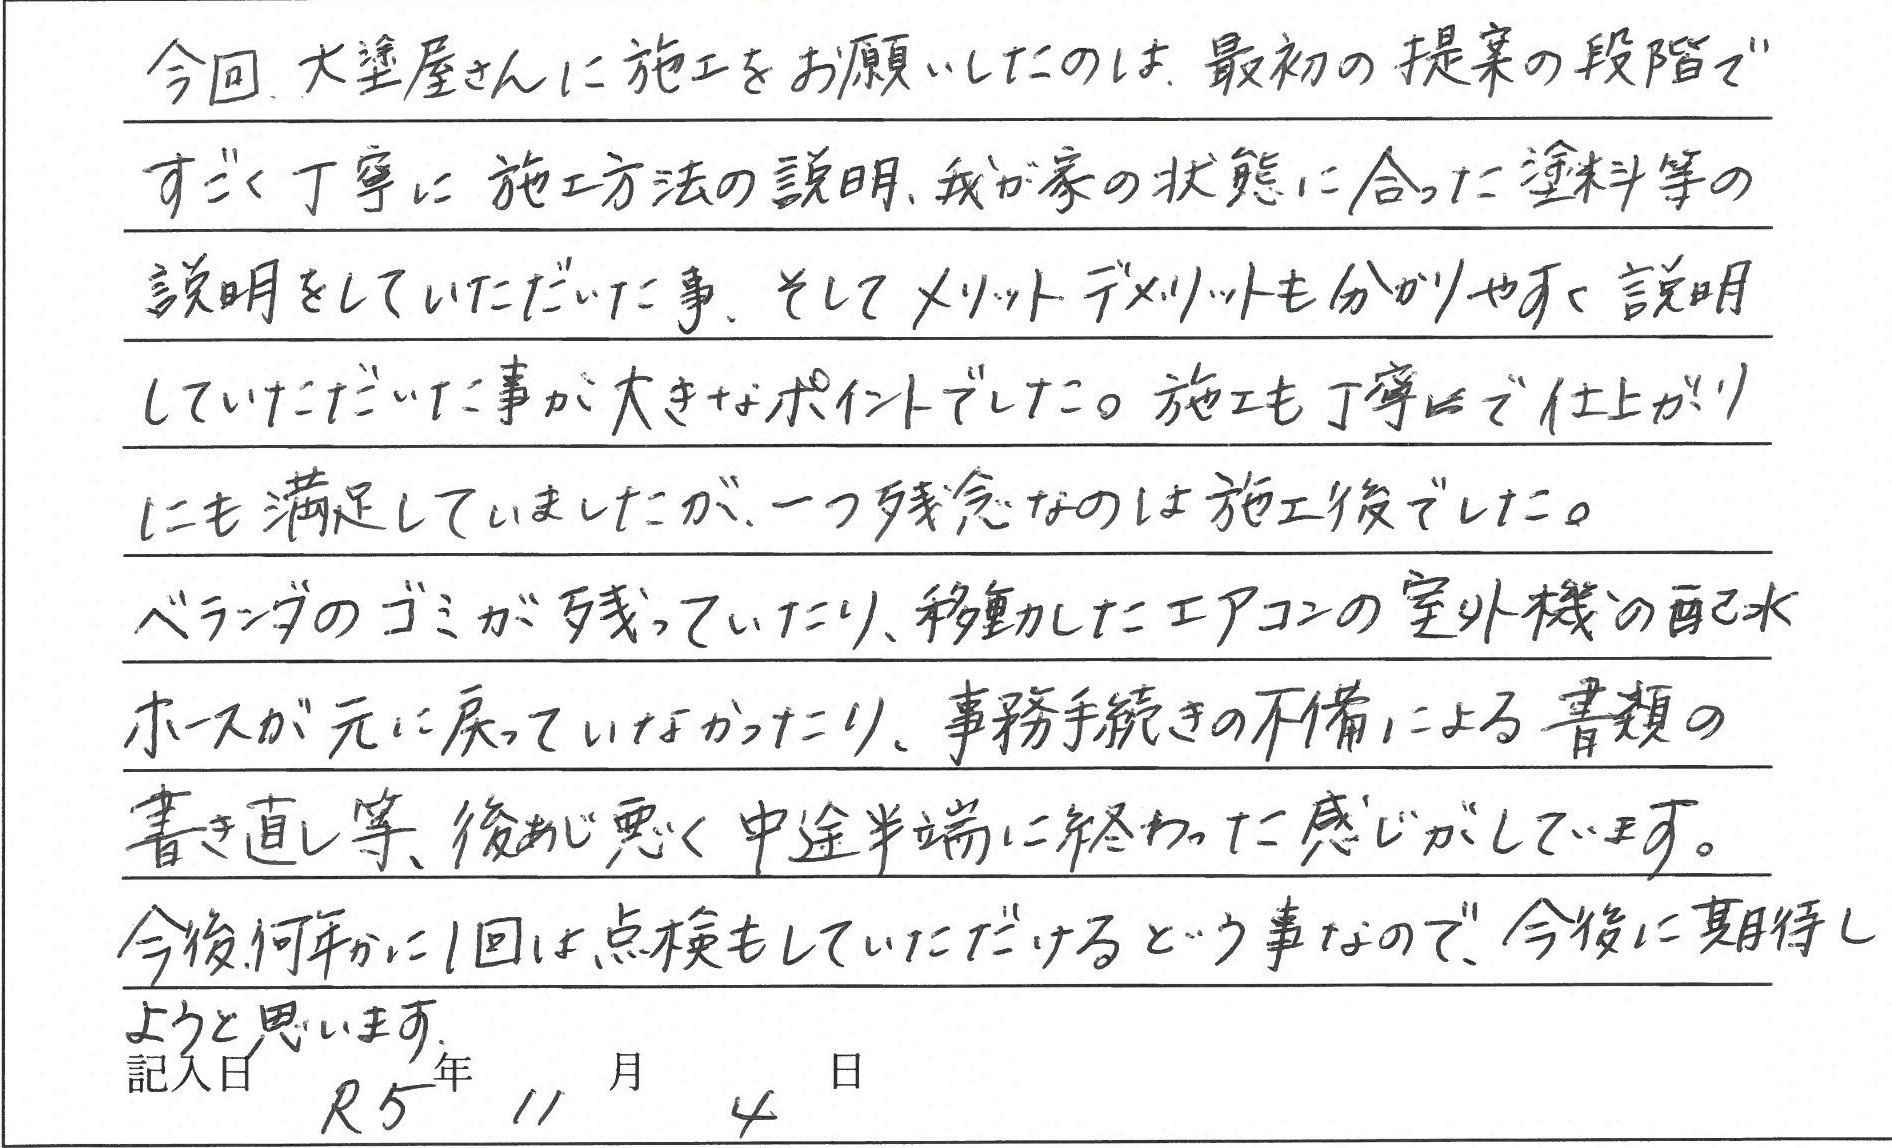 今回、大塗屋さんに施工をお願いしたのは、最初の提案の段階で
すごく丁寧に施工方法の説明、我が家の状態に合った塗料等の
説明をしていただいた事、そしてメリットデメリットも分かりやすく説明
していただいた事が大きなポイントでした。施工も丁寧で仕上がり
にも満足していましたが、一つ残念なのは施工後でした。
ベランダのゴミが残っていたり、移動したエアコンの室外機の配水
ホースが元に戻っていなかったり、事務手続きの不備による書類の
書き直し等、後あじ悪く中途半端に終わった感じがしています。
今後、何年かに1回は、点検もしていただけるという事なので、今後に期待し
ようと思います。
記入日 R5年 11月 4日